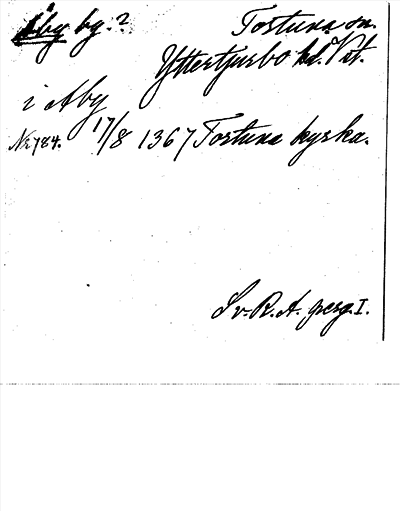 Åby by.? Tortuna sn.
Yttertjurbo hd. Vstm.
i Aby
Nr 784. 17/8 1367 Tortuna kyrka.
Sv. R. A. perg. I.